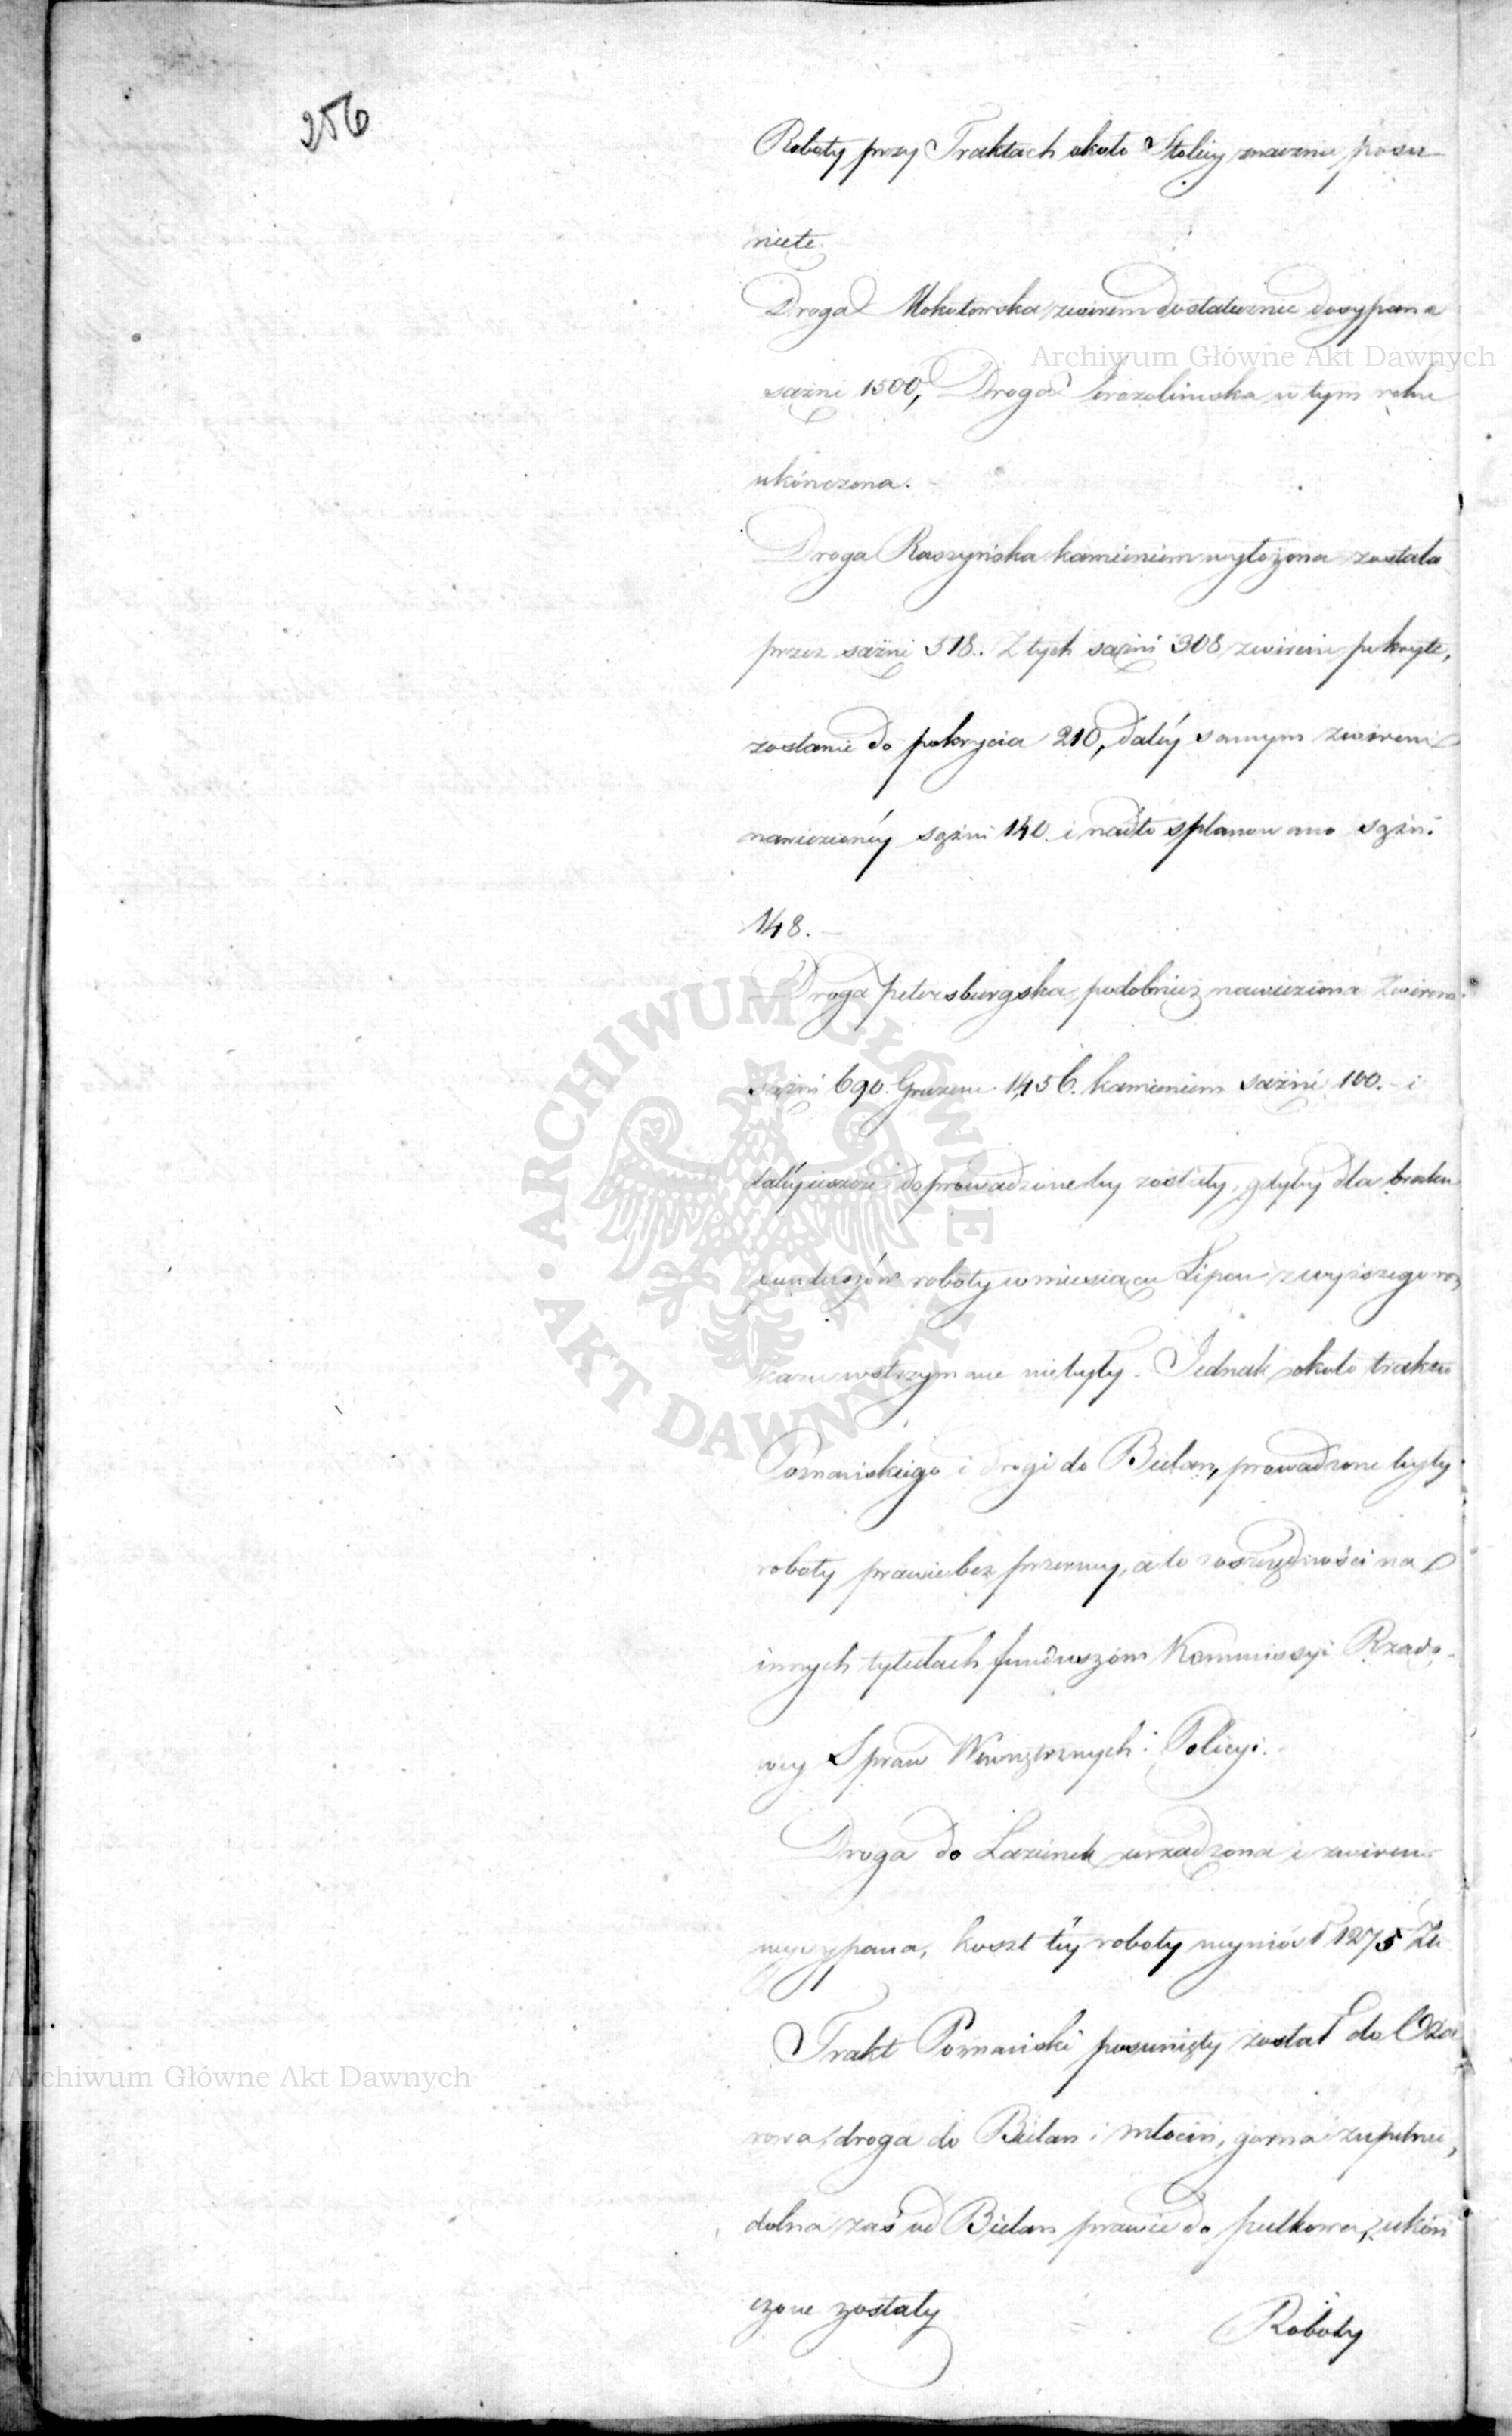 256
Roboty przy Traktach około Stolicy znacznie posu-
nięte.
Droga Mokotowska zwirem dostatecznie dosypana
sążni 1500, Droga Jerozolimska w tym roku
ukończona.
Droga Raszyńska kamieniem wyłożona została
przez sążni 518. Z tych sążni 308 zwirem pokryte,
zostanie do pokrycia 210, daléy samym zwirem
nawiezionéy sążni 140. i nadto splanowano sążni
148.
Droga petersburgska podobnież nawieziona żwirem
sążni 690. Gruzem 1,456. kamieniem sążni 100. - i
daléy ieszcze doprowadzone by zostały, gdyby dla braku
funduszów roboty w miesiącu Lipcu z wyższego roz
kazu wstrzymane niebyły. Jednak około traktu
Poznańskiego i drogi do Bielan, prowadzone były
roboty prawie bez przerwy, a to z oszczędności na
innych tytułach funduszów Kommissyi Rządo-
wéy Spraw Wewnętrznych i Policyi.
Droga do Łazienek urządzona i zwirem
wysypana, koszt téy roboty wyniósł 1275 Zł.
Trakt Poznański posunięty został do Oża
rowa, droga do Bielan i Młocin, gorna zupełnie,
dolna zaś od Bielan prawie do pułkowa, ukoń
czone zostały
Roboty
Archiwum Główne Akt Dawnych
Archiwum Główne Akt Dawnych
ARCHIWUM GŁÓWNE AKT DAWNYCH